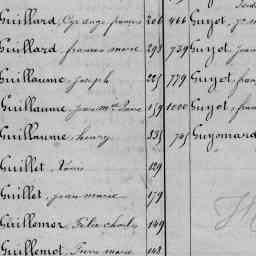 Guillard, françois 206 466 Guyot,
Guillard, francois marie 298 739 Guyot, Jean
Guillaume, Joseph 225 779 Guyot, fran
Guillaume, Jean M. 159 1000 Guyot, fran
Guillaume, henry 335 745 Guyomard
Guillet, 129
Guillet, jean marie 179
Guillemot, Félix charles 149
Guillemot, Pierre marie 148